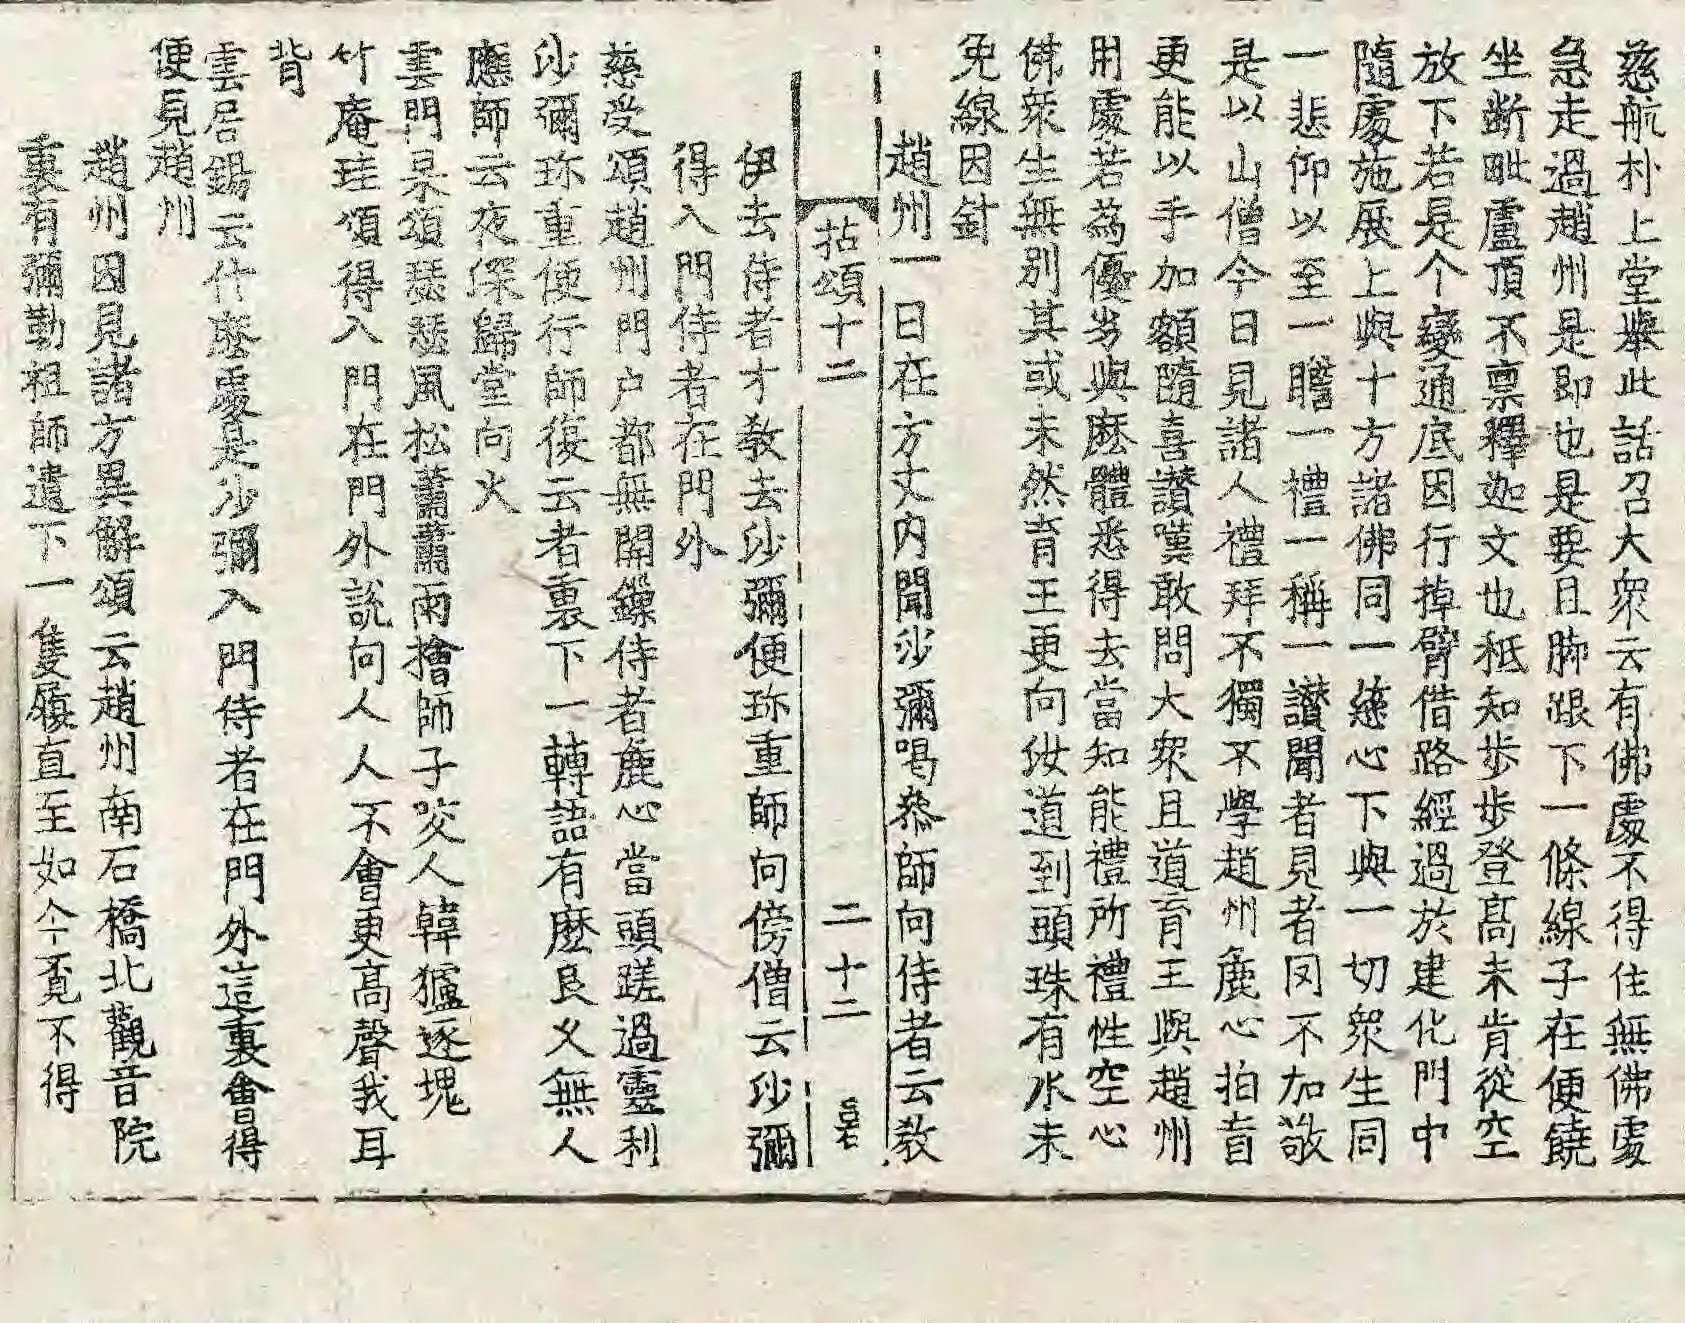 慈航朴上堂擧此話召大衆云有佛處不得住無佛處
急走過趙州是即也是要且脚跟下一條線子在便饒
坐斷毗盧頂不禀釋迦文也秪知步步登髙未肯從空
放下若是个變通底因行掉臂借路經過於建化門中
隨處施展上與十方諸佛同一慈心下與一切衆生同
一悲仰以至一瞻一禮一稱一讃聞者見者罔不加敬
是以山僧今日見諸人禮拜不獨不學趙州麁心拍盲
更能以手加額隨喜讃嘆敢問大衆且道育王與趙州
用處若爲優劣與麽體悉得去當知能禮所禮性空心
佛衆生無別其或未然育王更向汝道到頭珠有水未
免線因針
趙州一日在方丈内聞沙彌喝叅師向侍者云敎
拈頌十二 二十二
伊去侍者才敎去沙彌便珎重師向傍僧云沙彌
得入門侍者在門外
慈受頌趙州門户都無開鏁侍者麁心當頭蹉過靈利
沙彌珎重便行師復云者裏下一轉語有麽良乆無人
應師云夜深歸堂向火
雲門杲頌瑟瑟風松蕭蕭雨檜師子咬人韓獹逐塊
竹庵珪頌得入門在門外説向人人不會更髙聲我耳
背
雲居錫云什麽處是沙彌入門侍者在門外這裏會得
便見趙州
趙州因見諸方異解頌云趙州南石橋北觀音院
裏有彌勒祖師遺下一隻履直至如今覔不得